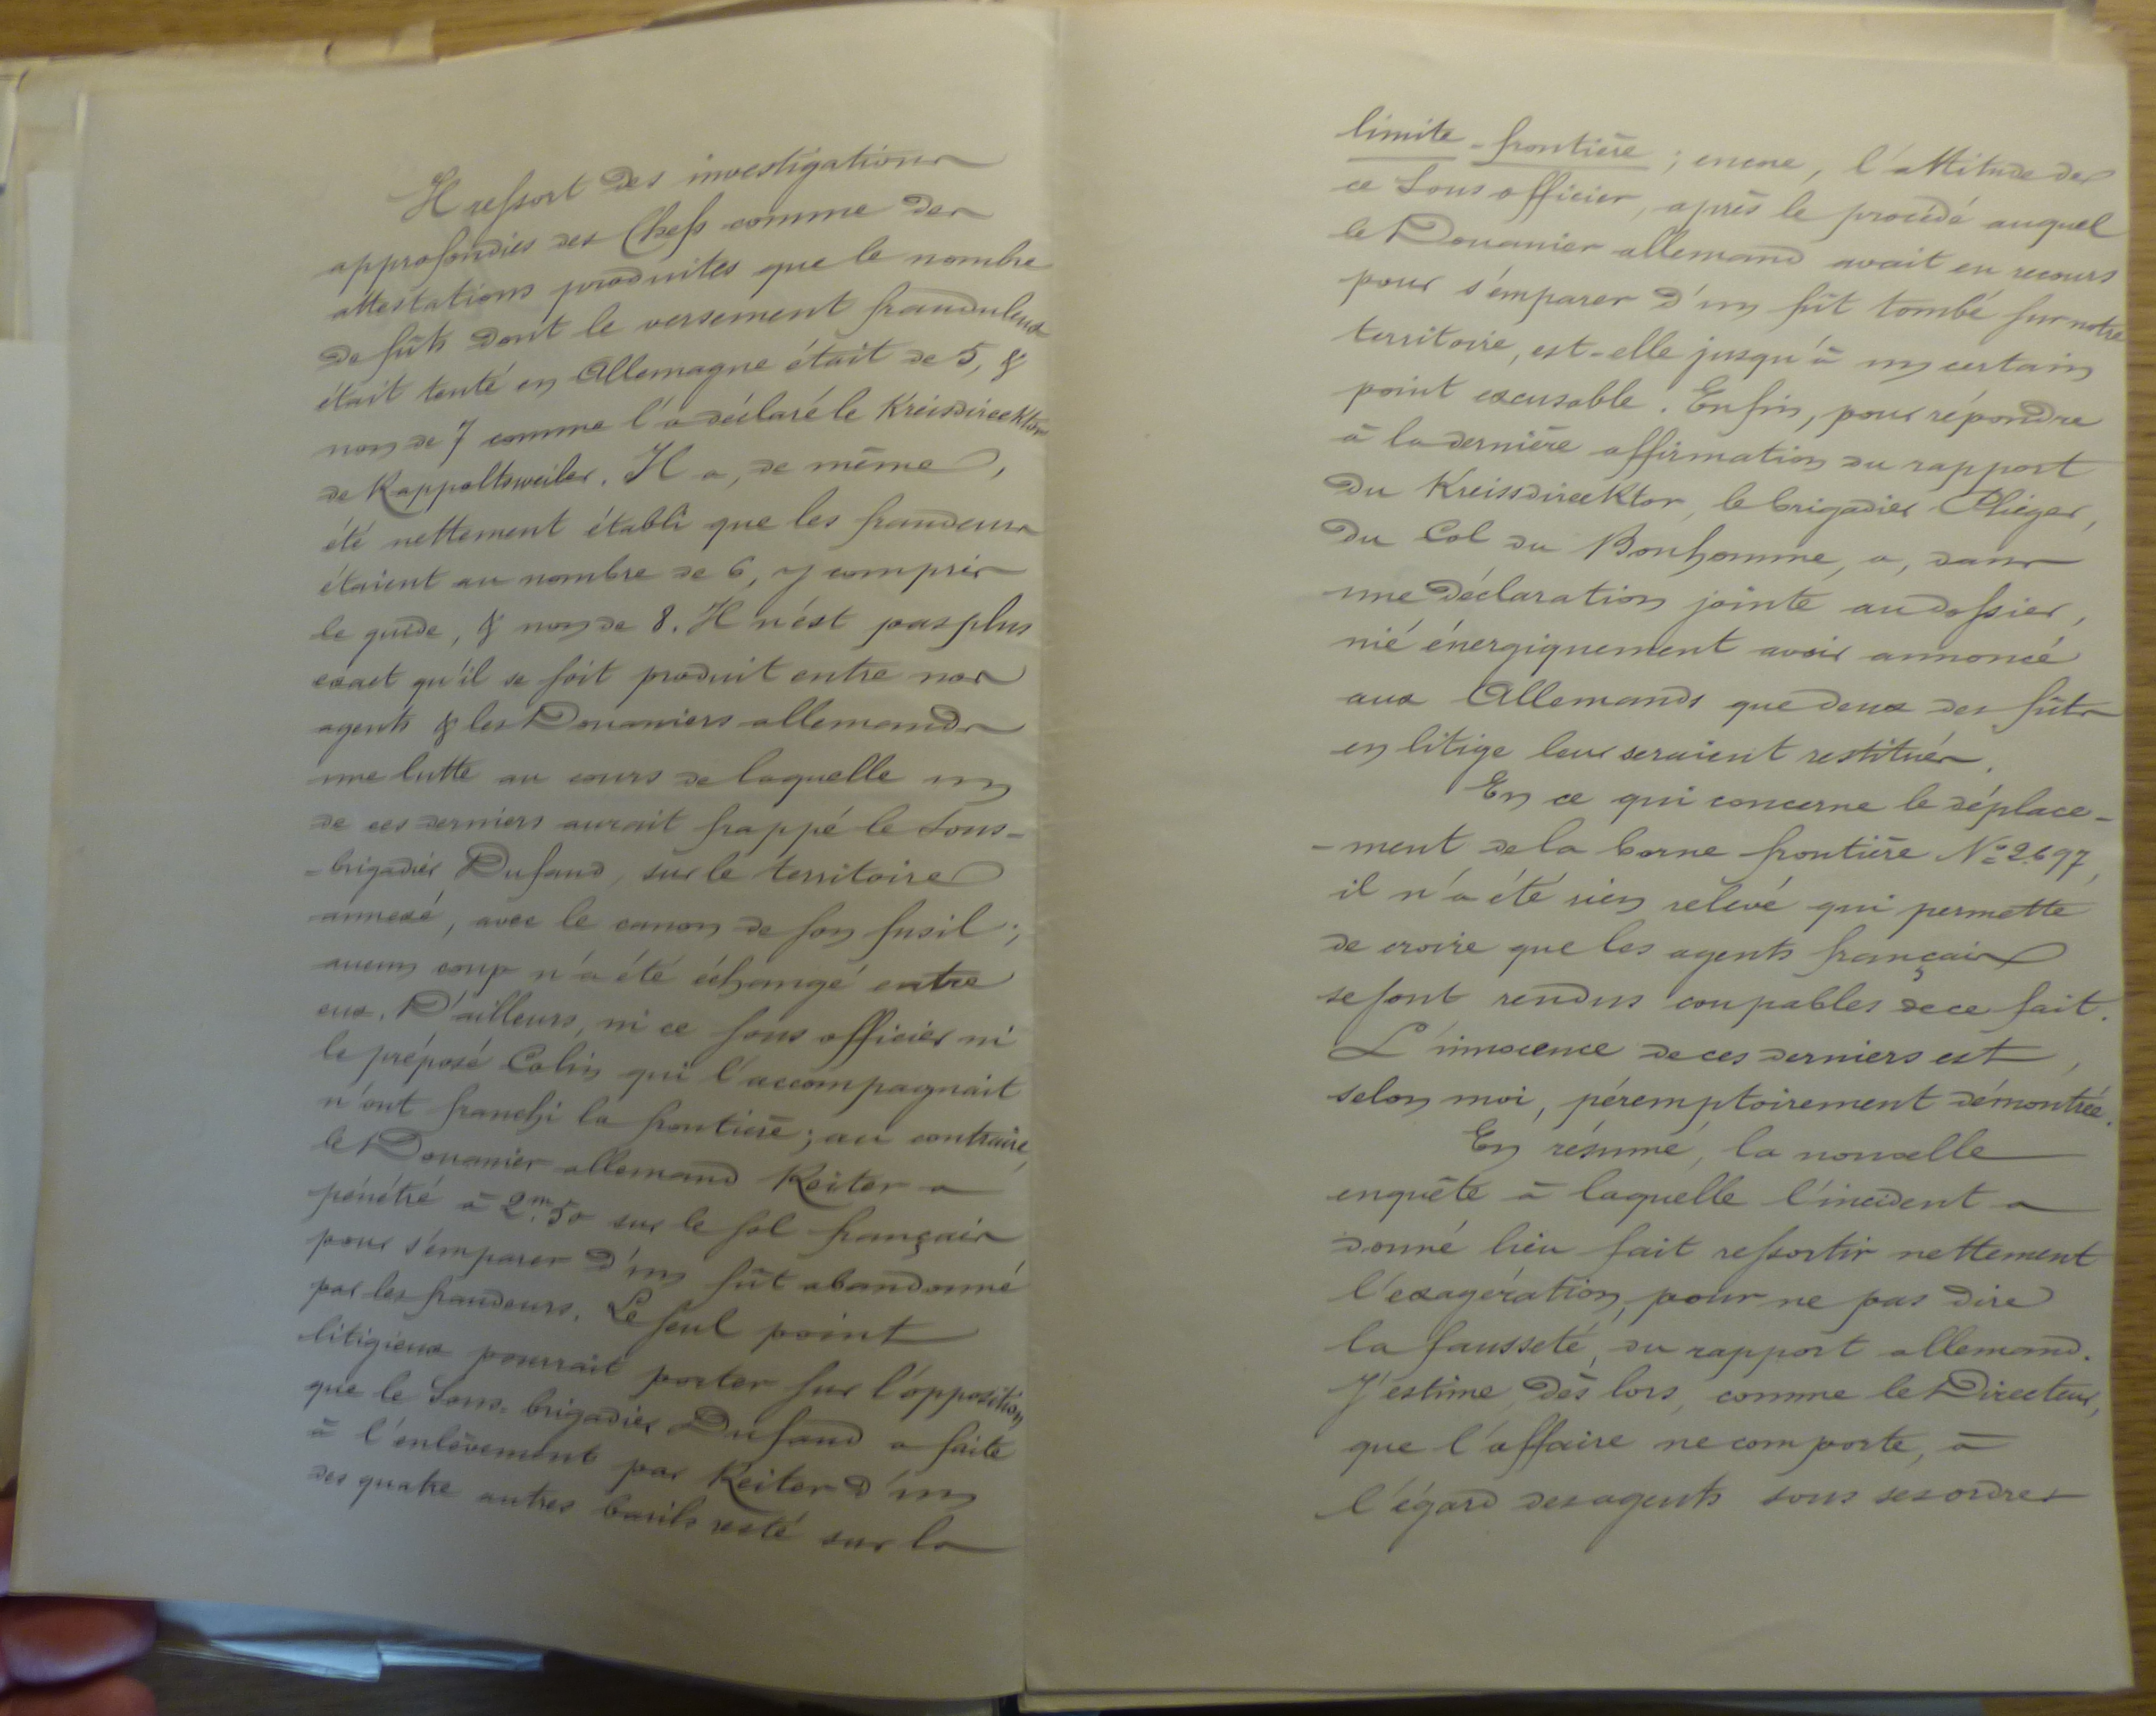 Il ressort des investigations
approfondies des Chefs comme des
attestations produites que le nombre
de fûts dont le versement frauduleux
était tenté en Allemagne était de 5, &
non de 7 comme l'a déclaré le Kreisdirecktor
de Rappoltsweiler. Il a, de même,
été nettement établi que les fraudeurs
étaient au nombre de 6, y compris
le guide, & non de 8. Il n'est pas plus
exact qu'il se soit produit entre nos
agents & les Douaniers allemands
une lutte au cours de laquelle un
de ces derniers aurait frappé le Sous-
-brigadier Dufaud, sur le territoire
annexé, avec le canon de son fusil;
aucun coup n'a été échangé entre
eux. D'ailleurs, ni ce sous officier ni
le préposé Colin qui l'accompagnait
n'ont franchi la frontière; au contraire,
le Douanier allemand Reiter a
pénétré à 2m.50 sur le sol français
pour s'emparer d'un fût abandonné
par les fraudeurs. Le seul point
litigieux pourrait porter sur l'opposition
que le Sous-brigadier Dufaud a faite
à l'enlèvement par Reiter d'un
des quatre autres barils resté sur la
limite-frontière; encore, l'attitude de
ce Sous officier, après le procédé auquel
le Douanier allemand avait eu recours
pour s'emparer d'un fût tombé sur notre
territoire, est-elle jusqu'à un certain
point excusable. Enfin, pour répondre
à la dernière affirmation du rapport
du Kreissdirecktor, le brigadier Pliéger,
du Col du Bonhomme, a, dans
une déclaration jointe au dossier,
nié énergiquement avoir annoncé
aux Allemands que deux des fûts
en litige leur seraient restitués.
En ce qui concerne le déplace-
-ment de la borne frontière No 2697,
il n'a été rien relevé qui permette
de croire que les agents français
se sont rendus coupables de ce fait.
L'innocence de ces derniers est,
selon moi, péremptoirement démontrée.
En résumé, la nouvelle
enquête à laquelle l'incident a
donné lieu fait ressortir nettement
l'exagération, pour ne pas dire
la fausseté, du rapport allemand.
J'estime, dès lors, comme le Directeur,
que l'affaire ne comporte, à
l'égard des agents sous ses ordres